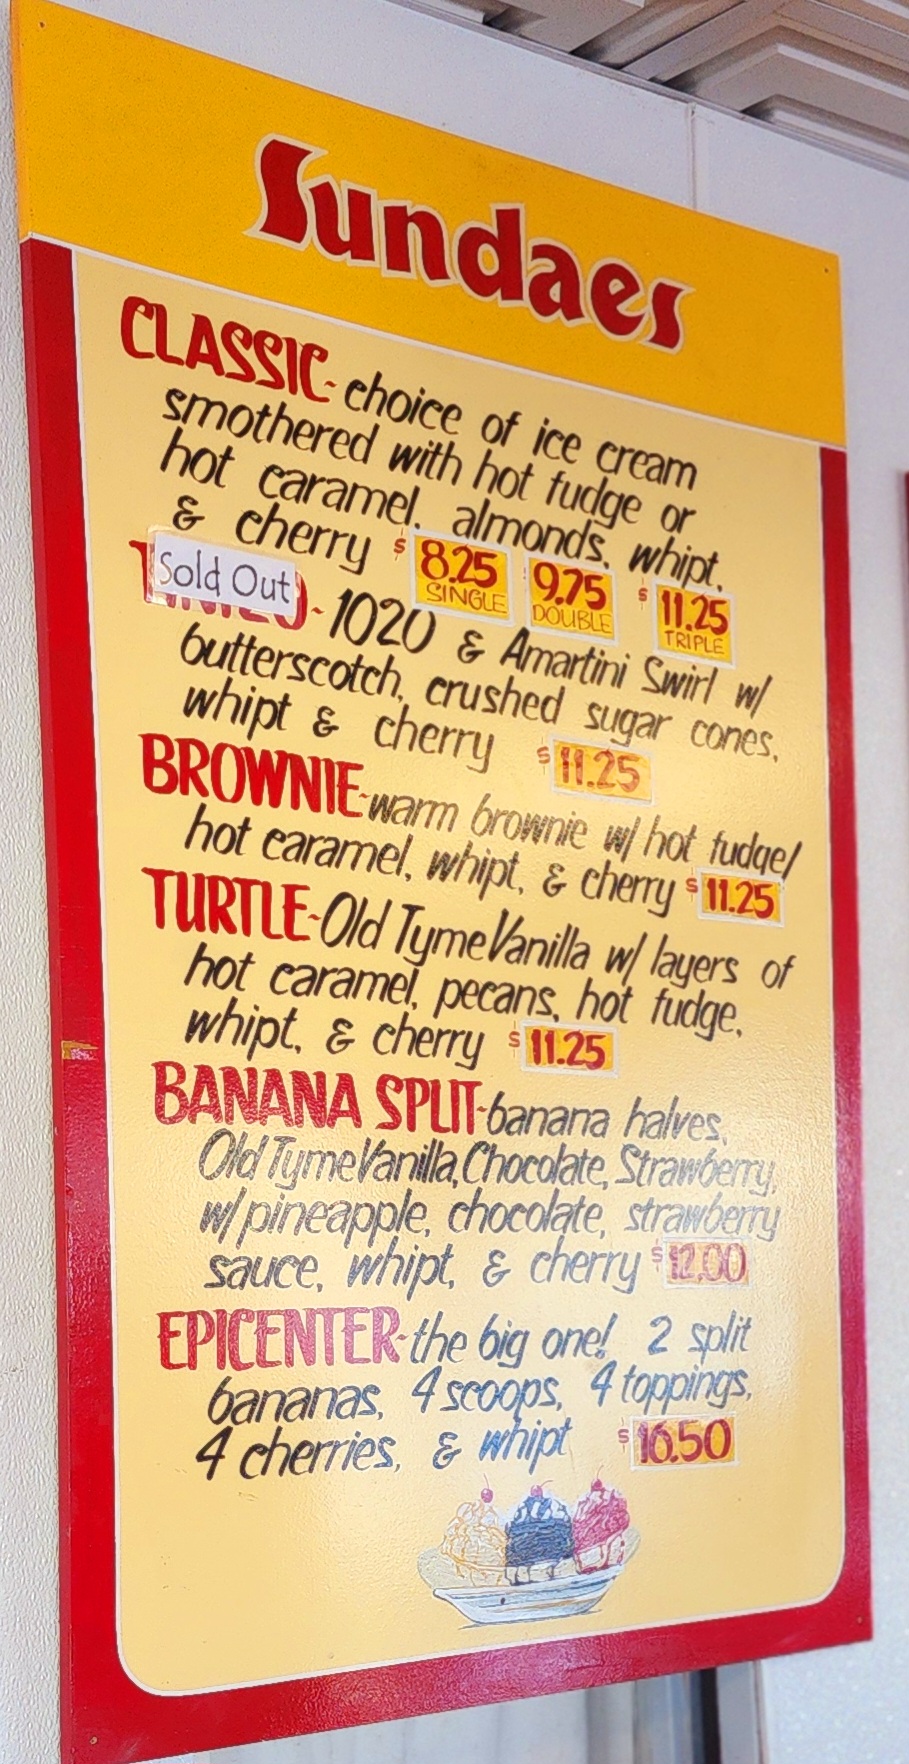 Sundaes
CLASSIC- choice of ice cream
smothered with hot fudge or
hot caramel, almonds, whipt,
& cherry $8.25 $9.75 $11.25
SINGLE DOUBLE TRIPLE
Sold Out
- 1020 & Amartini Swirl w/
butterscotch, crushed sugar cones,
whipt & cherry $11.25
BROWNIE-warm brownie w/ hot fudge/
hot caramel, whipt, & cherry $11.25
TURTLE-Old Tyme Vanilla w/ layers of
hot caramel, pecans, hot fudge,
whipt, & cherry $11.25
BANANA SPLIT-banana halves,
Old Tyme Vanilla, Chocolate, Strawberry,
w/ pineapple, chocolate, strawberry
sauce, whipt, & cherry $12.00
EPICENTER-the big one! 2 split
bananas, 4 scoops, 4 toppings,
4 cherries, & whipt $16.50